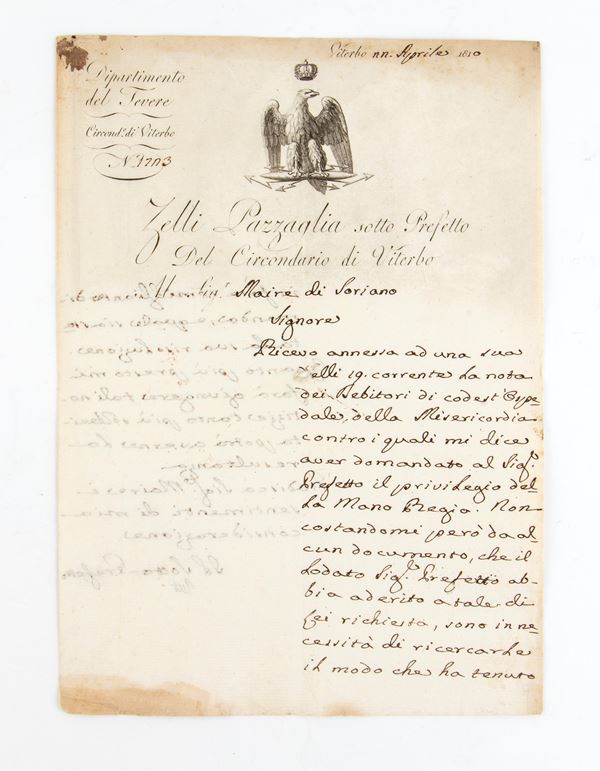 Viterbo nn. Aprile 1810
Dipartimento
del Tevere
Circond.º di Viterbo
N. 1703
Zelli Pazzaglia sotto Prefetto
Del Circondario di Viterbo
Al Sig.r Maire di Soriano
Signore
Ricevo annessa ad una sua
delli 19. corrente la nota
dei Debitori di codest' Ospe-
dale della Misericordia
contro i quali mi dice
aver domandato al Sig.r
Prefetto il privilegio del-
la Mano Regia. Non
costandomi però da al-
cun documento, che il
Lodato Sig.r Prefetto ab-
bia aderito a tale di
Lei richiesta, sono in ne-
cessità di ricercarle
il modo che ha tenuto